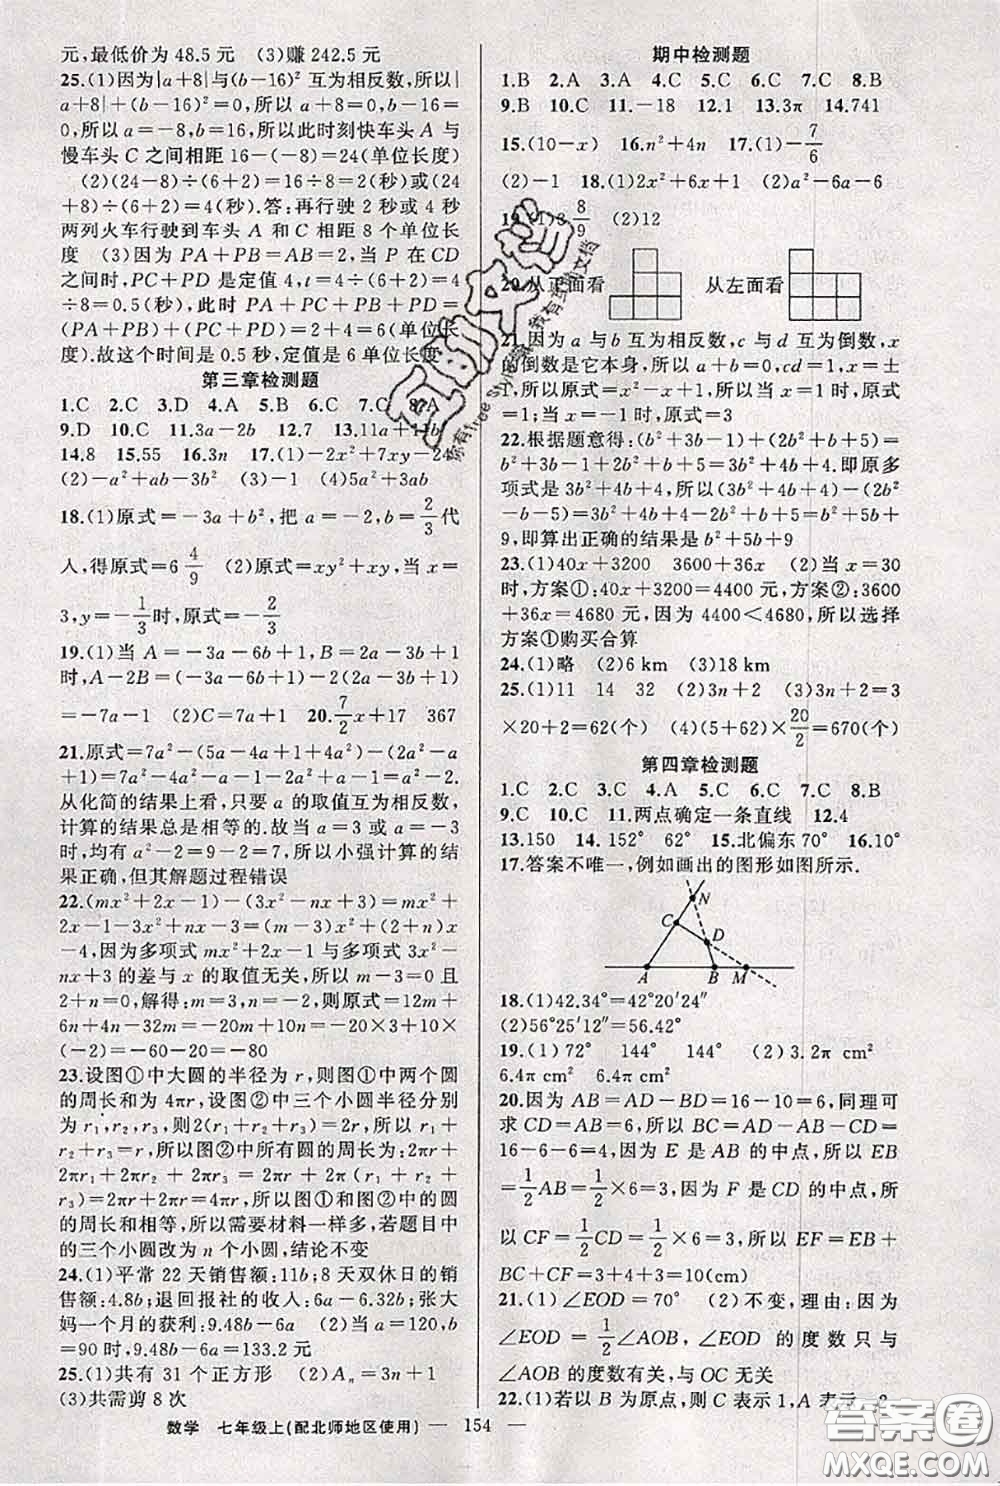 元,最低价为 48.5 元　(3)赚 242.5 元
25.(1)因为|a+8|与(b-16)² 互为相反数,所以|
a+8|+(b-16)²=0,所以 a+8=0,b-16=
0,所以 a=-8,b=16,所以此时刻快车头 A 与
慢车头 C 之间相距 16-(-8)=24(单位长度)
(2)(24-8)÷(6+2)=16÷8=2(秒)或(24
+8)÷(6+2)=32÷8=4(秒).答:再行驶 2 秒或 4 秒
两列火车行驶到车头 A 和 C 相距 8 个单位长
度　(3)因为 PA+PB=AB=2,当 P 在 CD
之间时,PC+PD 是定值 4,t=4÷(6+2)=4
÷8=0.5(秒),此时 PA+PC+PB+PD=
(PA+PB)+(PC+PD)=2+4=6(单位长
度).故这个时间是 0.5 秒,定值是 6 单位长度
第三章检测题
1.C　2.C　3.D　4.A　5.B　6.C　7.C　8.A
9.D　10.C　11.3a-2b　12.7　13.11a+11b
14.8　15.55　16.3n　17.(1)-2x²+7xy-24
(2)-a²+ab-3b²　(3)-1　(4)5a²+3ab
18.(1)原式=-3a+b²,把 a=-2,b=2/3代
入,得原式=6 4/9　(2)原式=xy²+xy,当 x=
3,y=-1/3时,原式=-2/3
19.(1)当 A=-3a-6b+1,B=2a-3b+1
时,A-2B=(-3a-6b+1)-2(2a-3b+1)
=-7a-1　(2)C=7a+1　20.7/2x+17　367
21.原式=7a²-(5a-4a+1+4a²)-(2a²-a
+1)=7a²-4a²-a-1-2a²+a-1=a²-2.
从化简的结果上看,只要 a 的取值互为相反数,
计算的结果总是相等的.故当 a=3 或 a=-3
时,均有 a²-2=9-2=7,所以小强计算的结
果正确,但其解题过程错误
22.(mx²+2x-1)-(3x²-nx+3)=mx²+
2x-1-3x²+nx-3=(m-3)x²+(n+2)x
-4,因为多项式 mx²+2x-1 与多项式 3x²-
nx+3 的差与 x 的取值无关,所以 m-3=0 且
n+2=0,解得:m=3,n=-2,则原式=12m+
6n+4n-32m=-20m+10n=-20×3+10×
(-2)=-60-20=-80
23.设图①中大圆的半径为 r,则图①中两个圆
的周长和为 4πr,设图②中三个小圆半径分别
为 r₁,r₂,r₃,则2(r₁+r₂+r₃)=2r,所以 r₁+
r₂+r₃=r,所以图②中所有圆的周长为 2πr+
2πr₁+2πr₂+2πr₃=2πr+2π(r₁+r₂+
r₃)=2πr+2πr=4πr,所以图①和图②中的圆
的周长和相等,所以需要材料一样多,若题目中
的三个小圆改为 n 个小圆,结论不变
24.(1)平常 22 天销售额:11b;8 天双休日的销
售额:4.8b;退回报社的收入:6a-6.32b;张大
妈一个月的获利:9.48b-6a　(2)当 a=120,b
=90 时,9.48b-6a=133.2 元
25.(1)共有 31 个正方形　(2)Aₙ=3n+1
(3)共需剪 8 次
期中检测题
1.B　2.A　3.A　4.C　5.C　6.C　7.C　8.B
9.B　10.C　11.-18　12.1　13.3π　14.741
15.(10-x)　16.n²+4n　17.(1)-7/6
(2)-1　18.(1)2x²+6x+1　(2)a²-6a-6
19.(1)3 8/9　(2)12
20.从正面看　从左面看
21.因为 a 与 b 互为相反数,c 与 d 互为倒数,x
的倒数是它本身,所以 a+b=0,cd=1,x=±
1,所以原式=2x²-x²+x+1,所以当 x=1 时,原式
=1;当 x=-1 时,原式=3
22.根据题意得:(b²+3b-1)+(2b²+b+5)=
b²+3b-1+2b²+b+5=3b²+4b+4.即原多
项式是 3b²+4b+4,所以(3b²+4b+4)-(2b²
-b-5)=3b²+4b+4-2b²+b+5=b²+5b+
9,即算出正确的结果是 b²+5b+9
23.(1)40x+3200　3600+36x　(2)当 x=30
时,方案①:40x+3200=4400 元,方案②:3600
+36x=4680 元,因为 4400<4680,所以选择
方案①购买合算
24.(1)略　(2)6 km　(3)18 km
25.(1)11　14　32　(2)3n+2　(3)3n+2=3
×20+2=62(个)　(4)(5+62)×20/2=670(个)
第四章检测题
1.C　2.C　3.C　4.B　5.D　6.C　7.C　8.B
9.C　10.C　11.两点确定一条直线　12.4
13.150　14. 152°　62°　15.北偏东 70°　16.10°
17.答案不唯一,例如画出的图形如图所示.
N
C
D
A　B　M
18.(1)42.34°=42°20′24″
(2)56°25′12″=56.42°
19.(1)72°　144°　144°　(2)3.2π cm²
6.4π cm²　6.4π cm²
20.因为 AB=AD-BD=16-10=6,同理可
求 CD=AB=6,所以 BC=AD-AB-CD=
16-6-6=4,因为 E 是 AB 的中点,所以 EB
=1/2AB=1/2×6=3,因为 F 是 CD 的中点,所
以 CF=1/2CD=1/2×6=3,所以 EF=EB+
BC+CF=3+4+3=10(cm)
21.(1)∠EOD=70°　(2)不变,理由:因为
∠EOD=1/2∠AOB,∠EOD 的度数只与
∠AOB 的度数有关,与 OC 无关
22.(1)若以 B 为原点,则 C 表示 1,A 表示-2
数学　七年级上(配北师地区使用)　— 154 —
答案圈
MXQE.COM